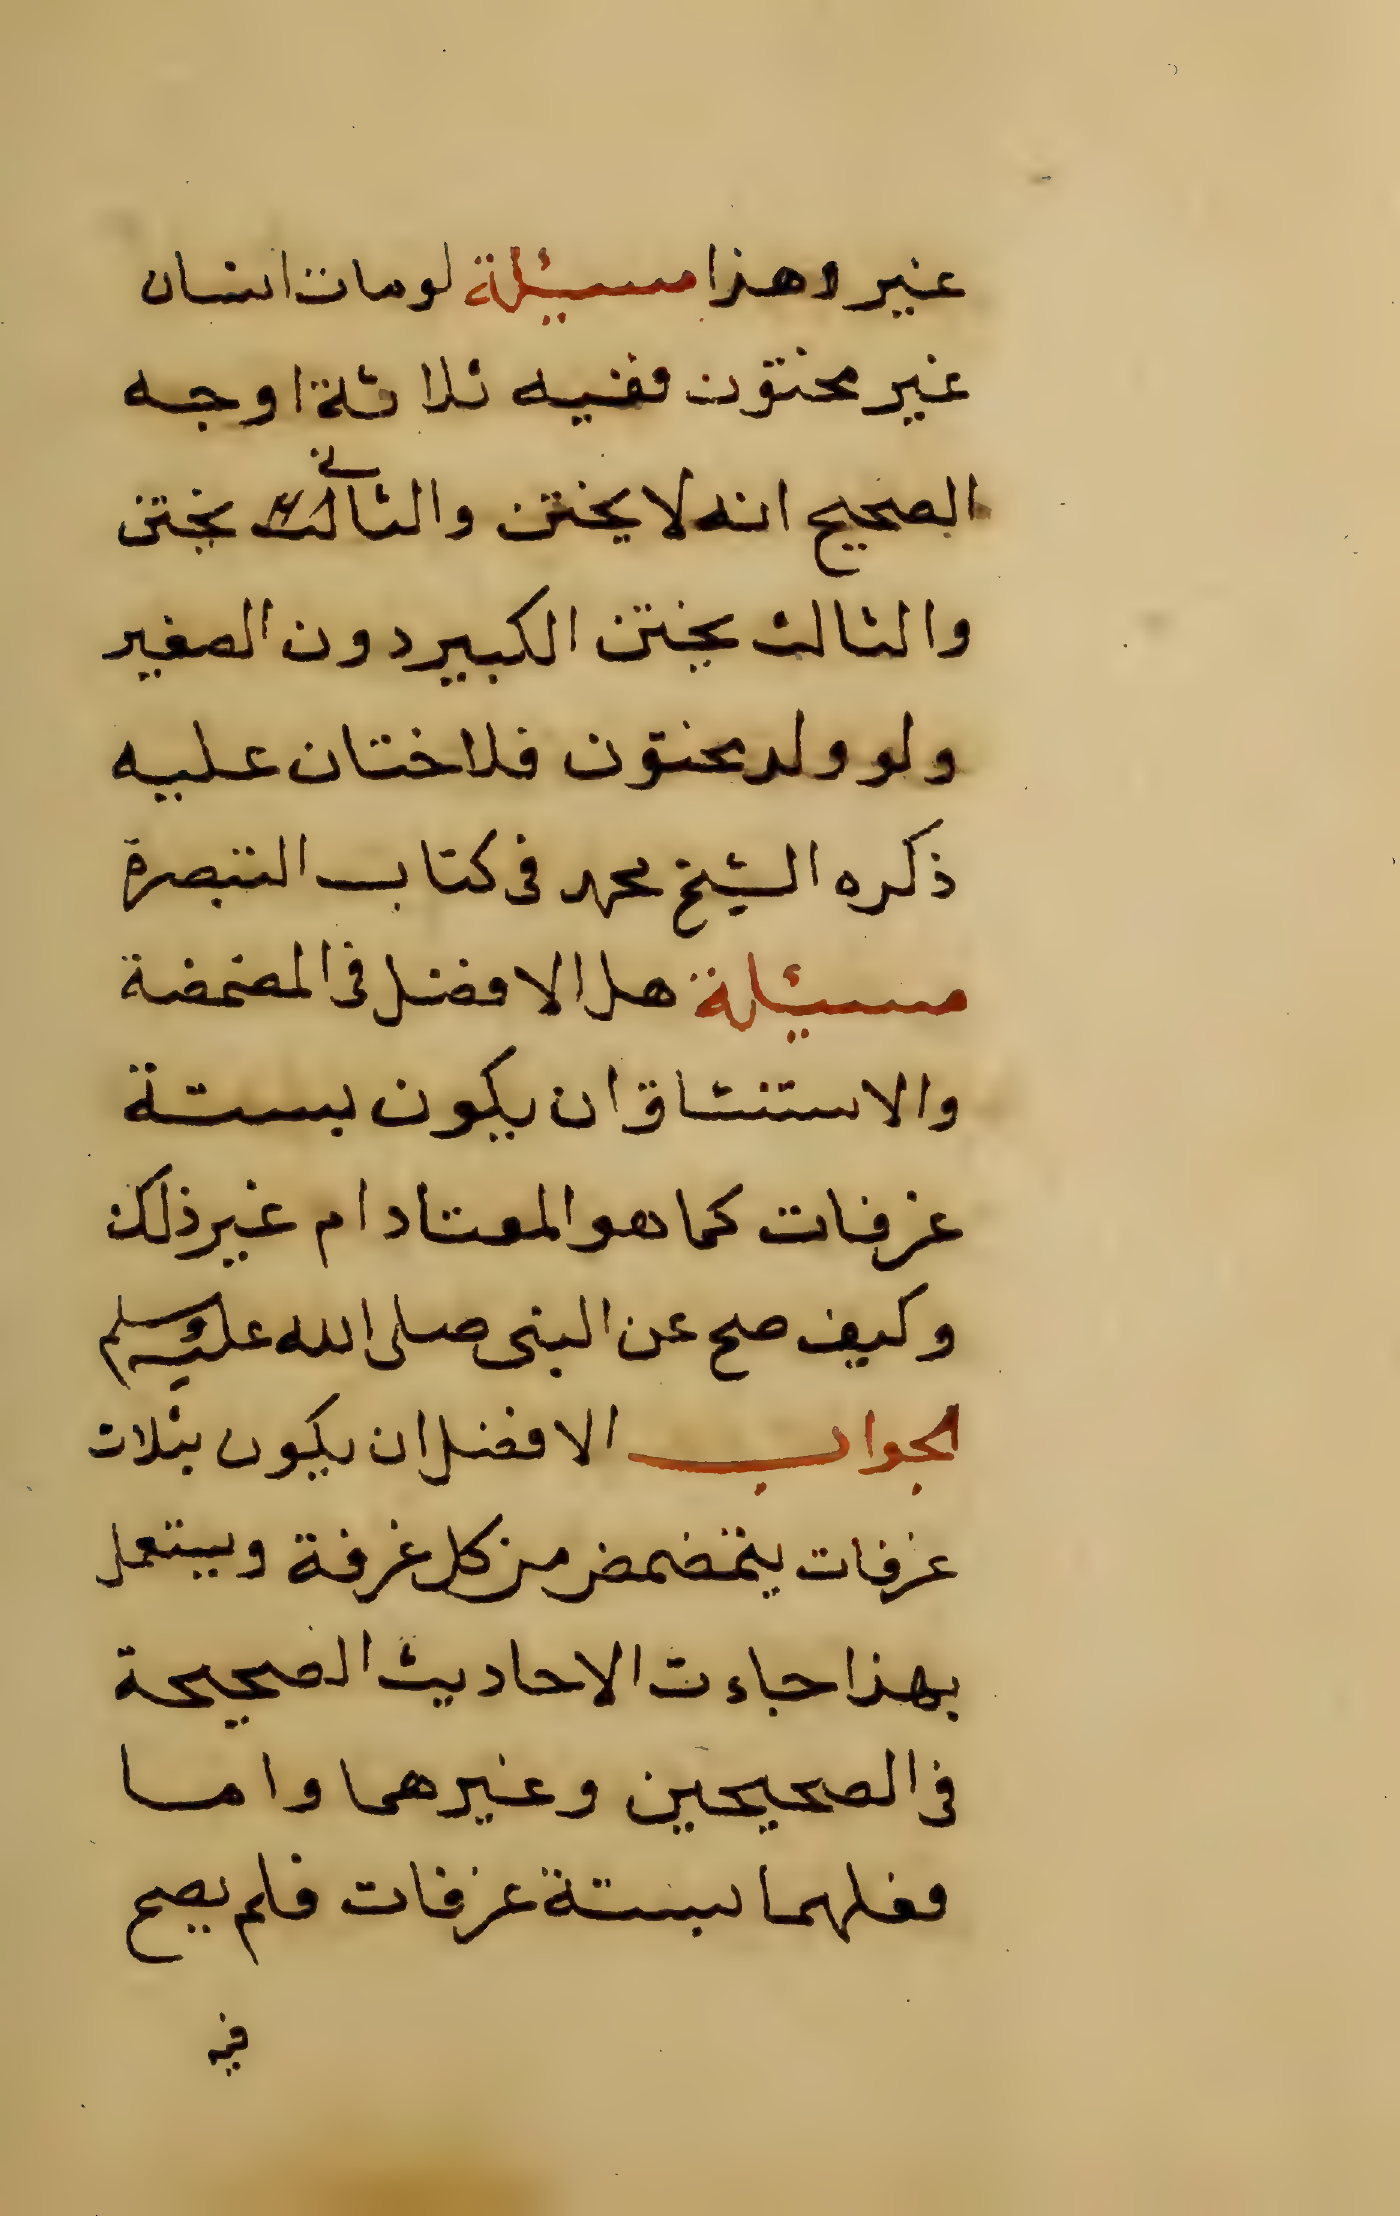 غير وهذا مسئلة لومات انسان
غير مختون ففيه ثلاثة اوجه
الصحيح انه لا يختن والثاني يختن
والثالث يختن الكبير دون الصغير
ولو ولد مختون فلا ختان عليه
ذكره الشيخ محمد فى كتاب التبصرة
مسئلة هل الافضل فى المضمضة
والاستنشاق ان يكون بستة
غرفات كما هو المعتاد ام غير ذلك
وكيف صح عن النبى صلى الله عليه وسلم
الجواب الافضل ان يكون بثلاث
غرفات يتمضمض من كل غرفة ويستعمل
بهذا جاءت الاحاديث الصحيحة
فى الصحيحين وغيرهما واما
فعلهما بستة غرفات فلم يصح
فيه